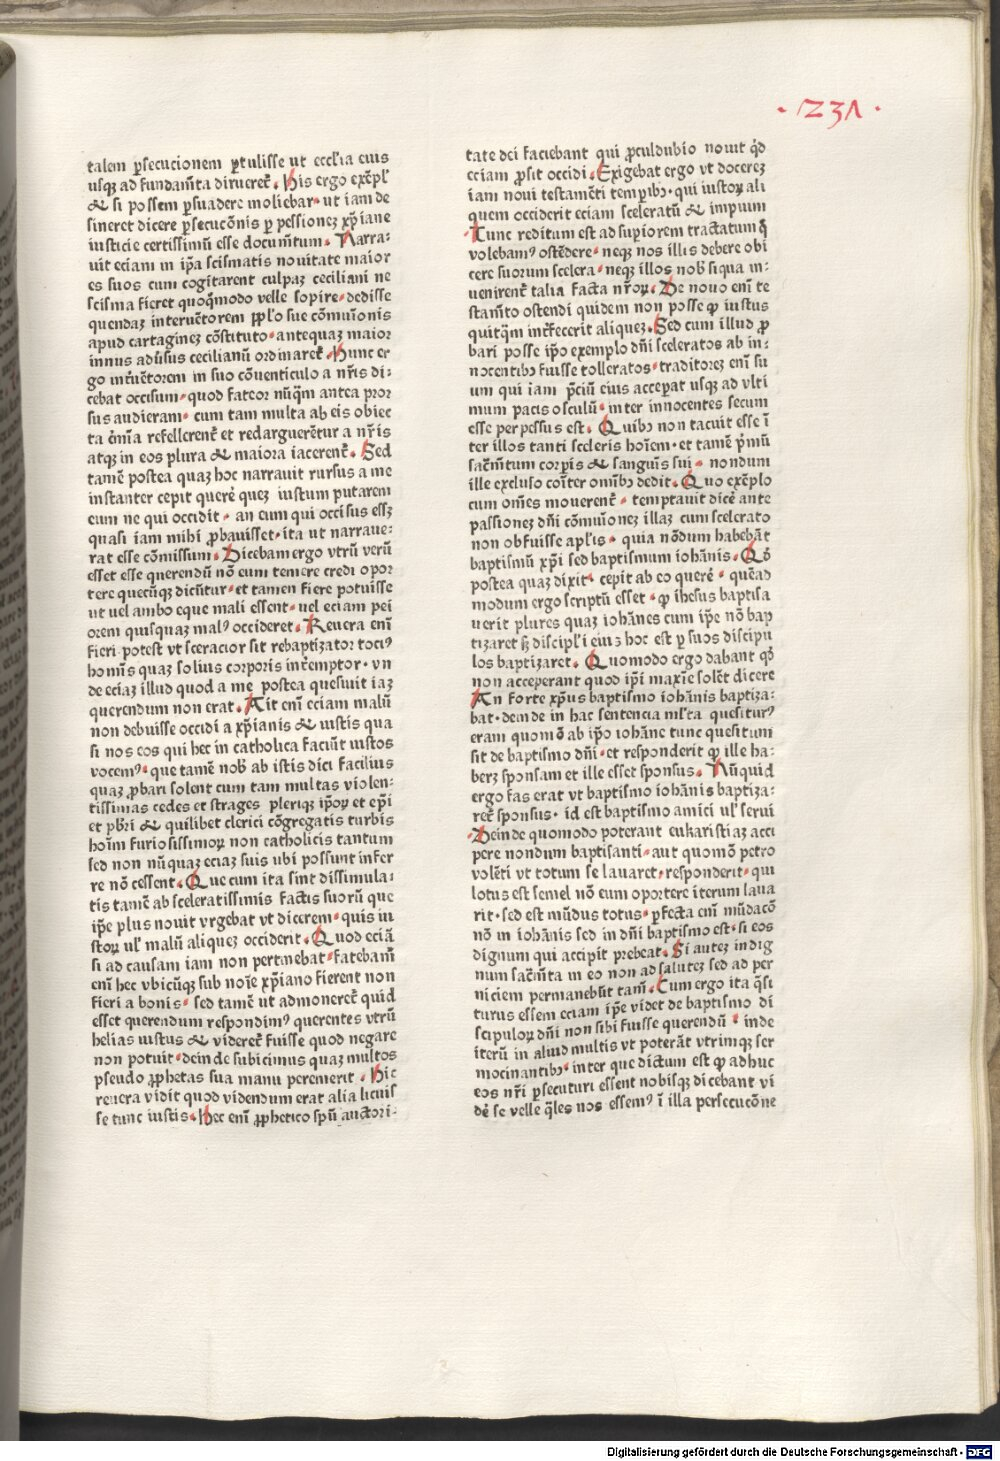 ·1231·
talem ꝑsecucionem ꝑtulisse ut eccl'ia eius
usqꝫ ad fundam̄ta dirueret̄. His ergo exēpl'
& si possem ꝑsuadere moliebar· ut iam de
sineret dicere ꝑsecucōnis ꝑ pessionez xp̄iane
iusticie certissimū esse docum̄tum. Narra:
uit eciam in ip̄a scismatis nouitate maior
es suos cum cogitarent culpaꝫ ceciliani ne
scisma fieret quoq̄modo velle sopire· dedisse
quendaꝫ interuētorem ppl'o sue cōmuīonis
apud cartagineꝫ cōstituto· antequaꝫ maior
innus aduˀsus cecilianū ordinaret̄. Hunc er
go int̄uētorem in suo cōuenticulo a nr̄is di:
cebat occisum· quod fateor nūq̄m antea pror
sus audieram· cum tam multa ab eis obiec
ta ōmīa refellerent̄ et redarguerētur a nr̄is
atqꝫ in eos plura & maiora iacerent̄. Sed
tamē postea quaꝫ hoc narrauit rursus a me
instanter cepit querē queꝫ iustum putarem
eum ne qui occidit· an eum qui occisus esſꝫ
quasi iam mihi ꝓbauisset· ita ut narraue:
rat esse cōmissum. Dicebam ergo vtrū verū
esset esse querendū nō eum temere credi opor
tere quecūqꝫ dicūtur· et tamen fiere potuisse
ut uel ambo eque mali essent· uel eciam pei
orem quisquaꝫ malꝰ occideret. Reuera enī
fieri potest vt sceracior sit rebaptizator tociꝰ
homīs quaꝫ solius corporis int̄emptor· vn
de eciaꝫ illud quod a me postea quesiuit iaꝫ
querendum non erat. Ait enī eciam malū
non debuisse occidi a xp̄ianis & iustis qua
si nos eos qui hec in catholica faciūt iustos
vocemꝰ· que tamē nob̄ ab istis dici facilius
quaꝫ ꝓbari solent cum tam multas violen:
tissimas cedes et strages pleriqꝫ ip̄oꝝ et ep̄i
et pb̄ri & quilibet clerici cōgregatis turbis
hoīm furiosissimoꝝ non catholicis tantum
sed non nūquaꝫ eciaꝫ suis ubi possunt infer
re nō cessent. Que cum ita sint dissimula:
tis tamē ab sceleratissimis factis suorū que
ip̄e plus nouit vrgebat vt dicerem· quis iu
stoꝝ ul' malū aliqueꝫ occiderit. Quod eciā
si ad causam iam non pertinebat· fatebam̄
enī hec vbicūqꝫ sub noīe xp̄iano fierent non
fieri a bonis· sed tamē ut admoneret̄ quid
esset querendum respondimꝰ querentes vtrū
helias iustus & videret̄ fuisse quod negare
non potuit· deinde subicimus quaꝫ multos
pseudo ꝓphetas sua manu peremerit. Hic
reuera vidit quod videndum erat alia licuis
se tunc iustis. Hec enī ꝓphetico spū auctori·
tate dei faciebant qui ꝓculdubio nouit q̄d
eciam ꝓsit occidi. Exigebat ergo vt docereꝫ
iam noui testamēti temꝑibꝫ· qui iustoꝝ ali
quem occiderit eciam sceleratū & impium
Tunc reditum est ad suꝑiorem tractatum q̄
volebamꝰ ostēdere· neqꝫ nos illis debere obi
cere suorum scelera· neqꝫ illos nob̄ siqua in:
uenirent̄ talia facta nr̄oꝝ. De nouo enī te
stam̄to ostendi quidem non posse ꝙ iustus
quitq̄m int̄fecerit aliqueꝫ. Sed cum illud ꝓ
bari posse ip̄o exemplo dn̄i sceleratos ab in:
nocentibꝫ fuisse tolleratos· traditoreꝫ enī su
um qui iam p̄ciū eius acceꝑat usqꝫ ad vlti
mum pacis osculū· inter innocentes secum
esse perpessus est. Quibꝫ non tacuit esse ī
ter illos tanti sceleris hoīem· et tamē p̄mū
sacm̄tum corꝑis & sanguīs sui· nondum
ille excluso cōiter omībꝫ dedit. Quo exēplo
cum om̄es mouerent̄· temptauit dicē ante
passioneꝫ dn̄i cōmuīoneꝫ illaꝫ cum scelerato
non obfuisse apl'is· quia nōdum habebāt
baptismū xp̄i sed baptismum iohānis. Qd̄
postea quaꝫ dixit· cepit ab eo querē· quēad
modum ergo scriptū esset· ꝙ ihesus baptisa
uerit plures quaꝫ iohānes cum ip̄e nō bap
tizaret sꝫ discipl'i eius hoc est ꝑ suos discipu
los baptizaret. Quomodo ergo dabant qd̄
non acceperant quod ip̄i maxīe solēt dicere
An forte xp̄us baptismo iohānis baptiza:
bat· deinde in hac sentencia ml'ta quesiturꝰ
eram quomō ab ip̄o iohāne tunc quesitum
sit de baptismo dn̄i· et responderit ꝙ ille ha:
beꝫ sponsam et ille esset sponsus. Nūquid
ergo fas erat vt baptismo iohānis baptiza:
ret̄ sponsus· id est baptismo amici ul' serui
Deinde quomodo poterant eukaristiaꝫ acci
pere nondum baptisanti· aut quomō petro
volēti vt totum se lauaret· responderit· qui
lotus est semel nō eum oportere iterum laua
rit· sed est mūdus totus· ꝑfecta enī mūdacō
nō in iohānis sed in dn̄i baptismo est· si eos
dignum qui accipit prebeat. Si auteꝫ indig
num sacm̄ta in eo non ad saluteꝫ sed ad per
niciem permanebūt tam̄. Cum ergo ita q̄si
turus essem eciam ip̄e videt de baptismo di
scipuloꝝ dn̄i non sibi fuisse querendū· inde
iterū in aliud multis vt poterāt vtrimqꝫ ser
mocinantibꝫ· inter que dictum est ꝙ adhuc
eos nr̄i ꝑsecuturi essent nobisqꝫ dicebant vi
dē se velle q̄les nos essemꝰ ī illa persecucōne
Digitalisierung gefördert durch die Deutsche Forschungsgemeinschaft · DFG